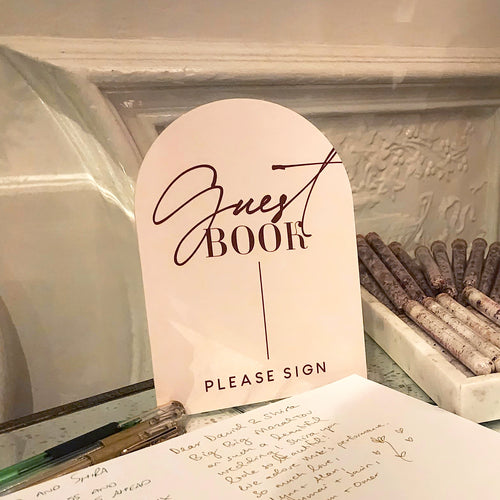 Guest
BOOK
PLEASE SIGN
Dear David & Shira
Big Big Mazal tov
on such a beautiful
wedding! Shira you
look so beautiful!
We
so much love!
AND SHIRA
AND
AHEAD